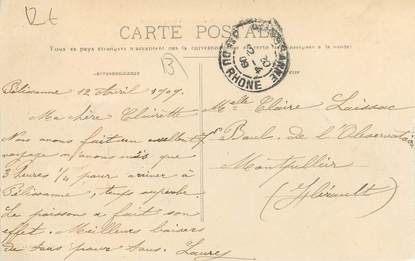 CARTE POSTALE
Tous les pays étrangers n'acceptent pas la correspondance
PELISSANNE
BOUCHES DU RHONE
B
Pélissanne 12 Avril 1909.
Ma chère Clairette
Nous avons fait un excellent
voyage n'avons mis que
3 heures 1/4 pour arriver à
Pélissanne, temps superbe.
Le poisson a fait son
effet. Meilleurs baisers
de tous pour tous. Laure
Mlle Claire Laissac
Boul. de l'Observatoire
Montpellier
(Hérault)